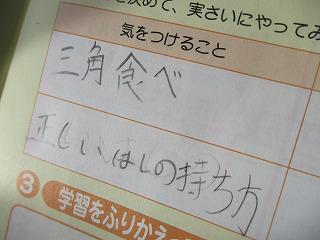 を決めて、実さいにやってみ
気をつけること
三角食べ
正しいはしの持ち方
3 学習をふりかえ